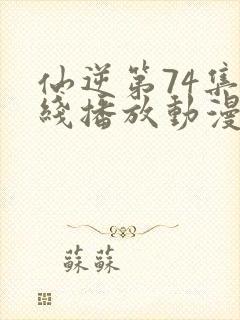 仙逆第74集
綫播放動漫
蘇蘇